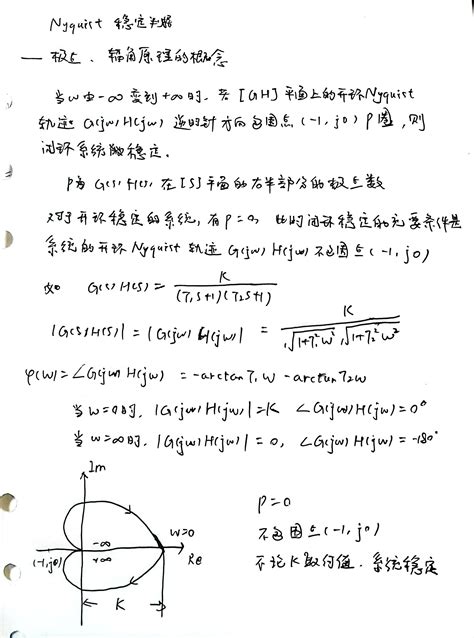 Nyquist 稳定判据
一 极点、辐角原理的概念
当ω由-∞变到+∞时,若[GH]平面上的开环Nyquist
轨迹G(jω)H(jω)逆时针方向包围点(-1,j0)P圈,则
闭环系统稳定.
P为G(s)H(s)在[S]平面的右半部分的极点数
对于开环稳定的系统,有P=0,此时闭环稳定的充要条件是
系统的开环Nyquist轨迹G(jω)H(jω)不包围点(-1,j0)
如 G(s)H(s)= K/(T₁s+1)(T₂s+1)
|G(s)H(s)|=|G(jω)H(jω)| = K/√1+T₁²ω² √1+T₂²ω²
φ(ω)=∠G(jω)H(jω) =-arctanT₁ω -arctanT₂ω
当ω=0时,|G(jω)H(jω)|=K ∠G(jω)H(jω)=0°
当ω=∞时,|G(jω)H(jω)|=0, ∠G(jω)H(jω)=-180°
Im
ω=0
(-1,j0)
-∞
+∞
Re
K
P=0
不包围点(-1,j0)
不论K取何值,系统稳定